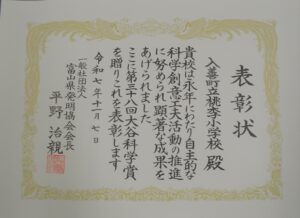 表彰状
入善町立桃李小学校 殿
貴校は永年にわたり自主的な
科学創意工夫活動の推進
に努められ顕著な成果を
あげられました
ここに第三十八回大谷科学賞
を贈りこれを表彰します
令和七年十一月七日
一般社団法人
富山県発明協会会長
平野治親